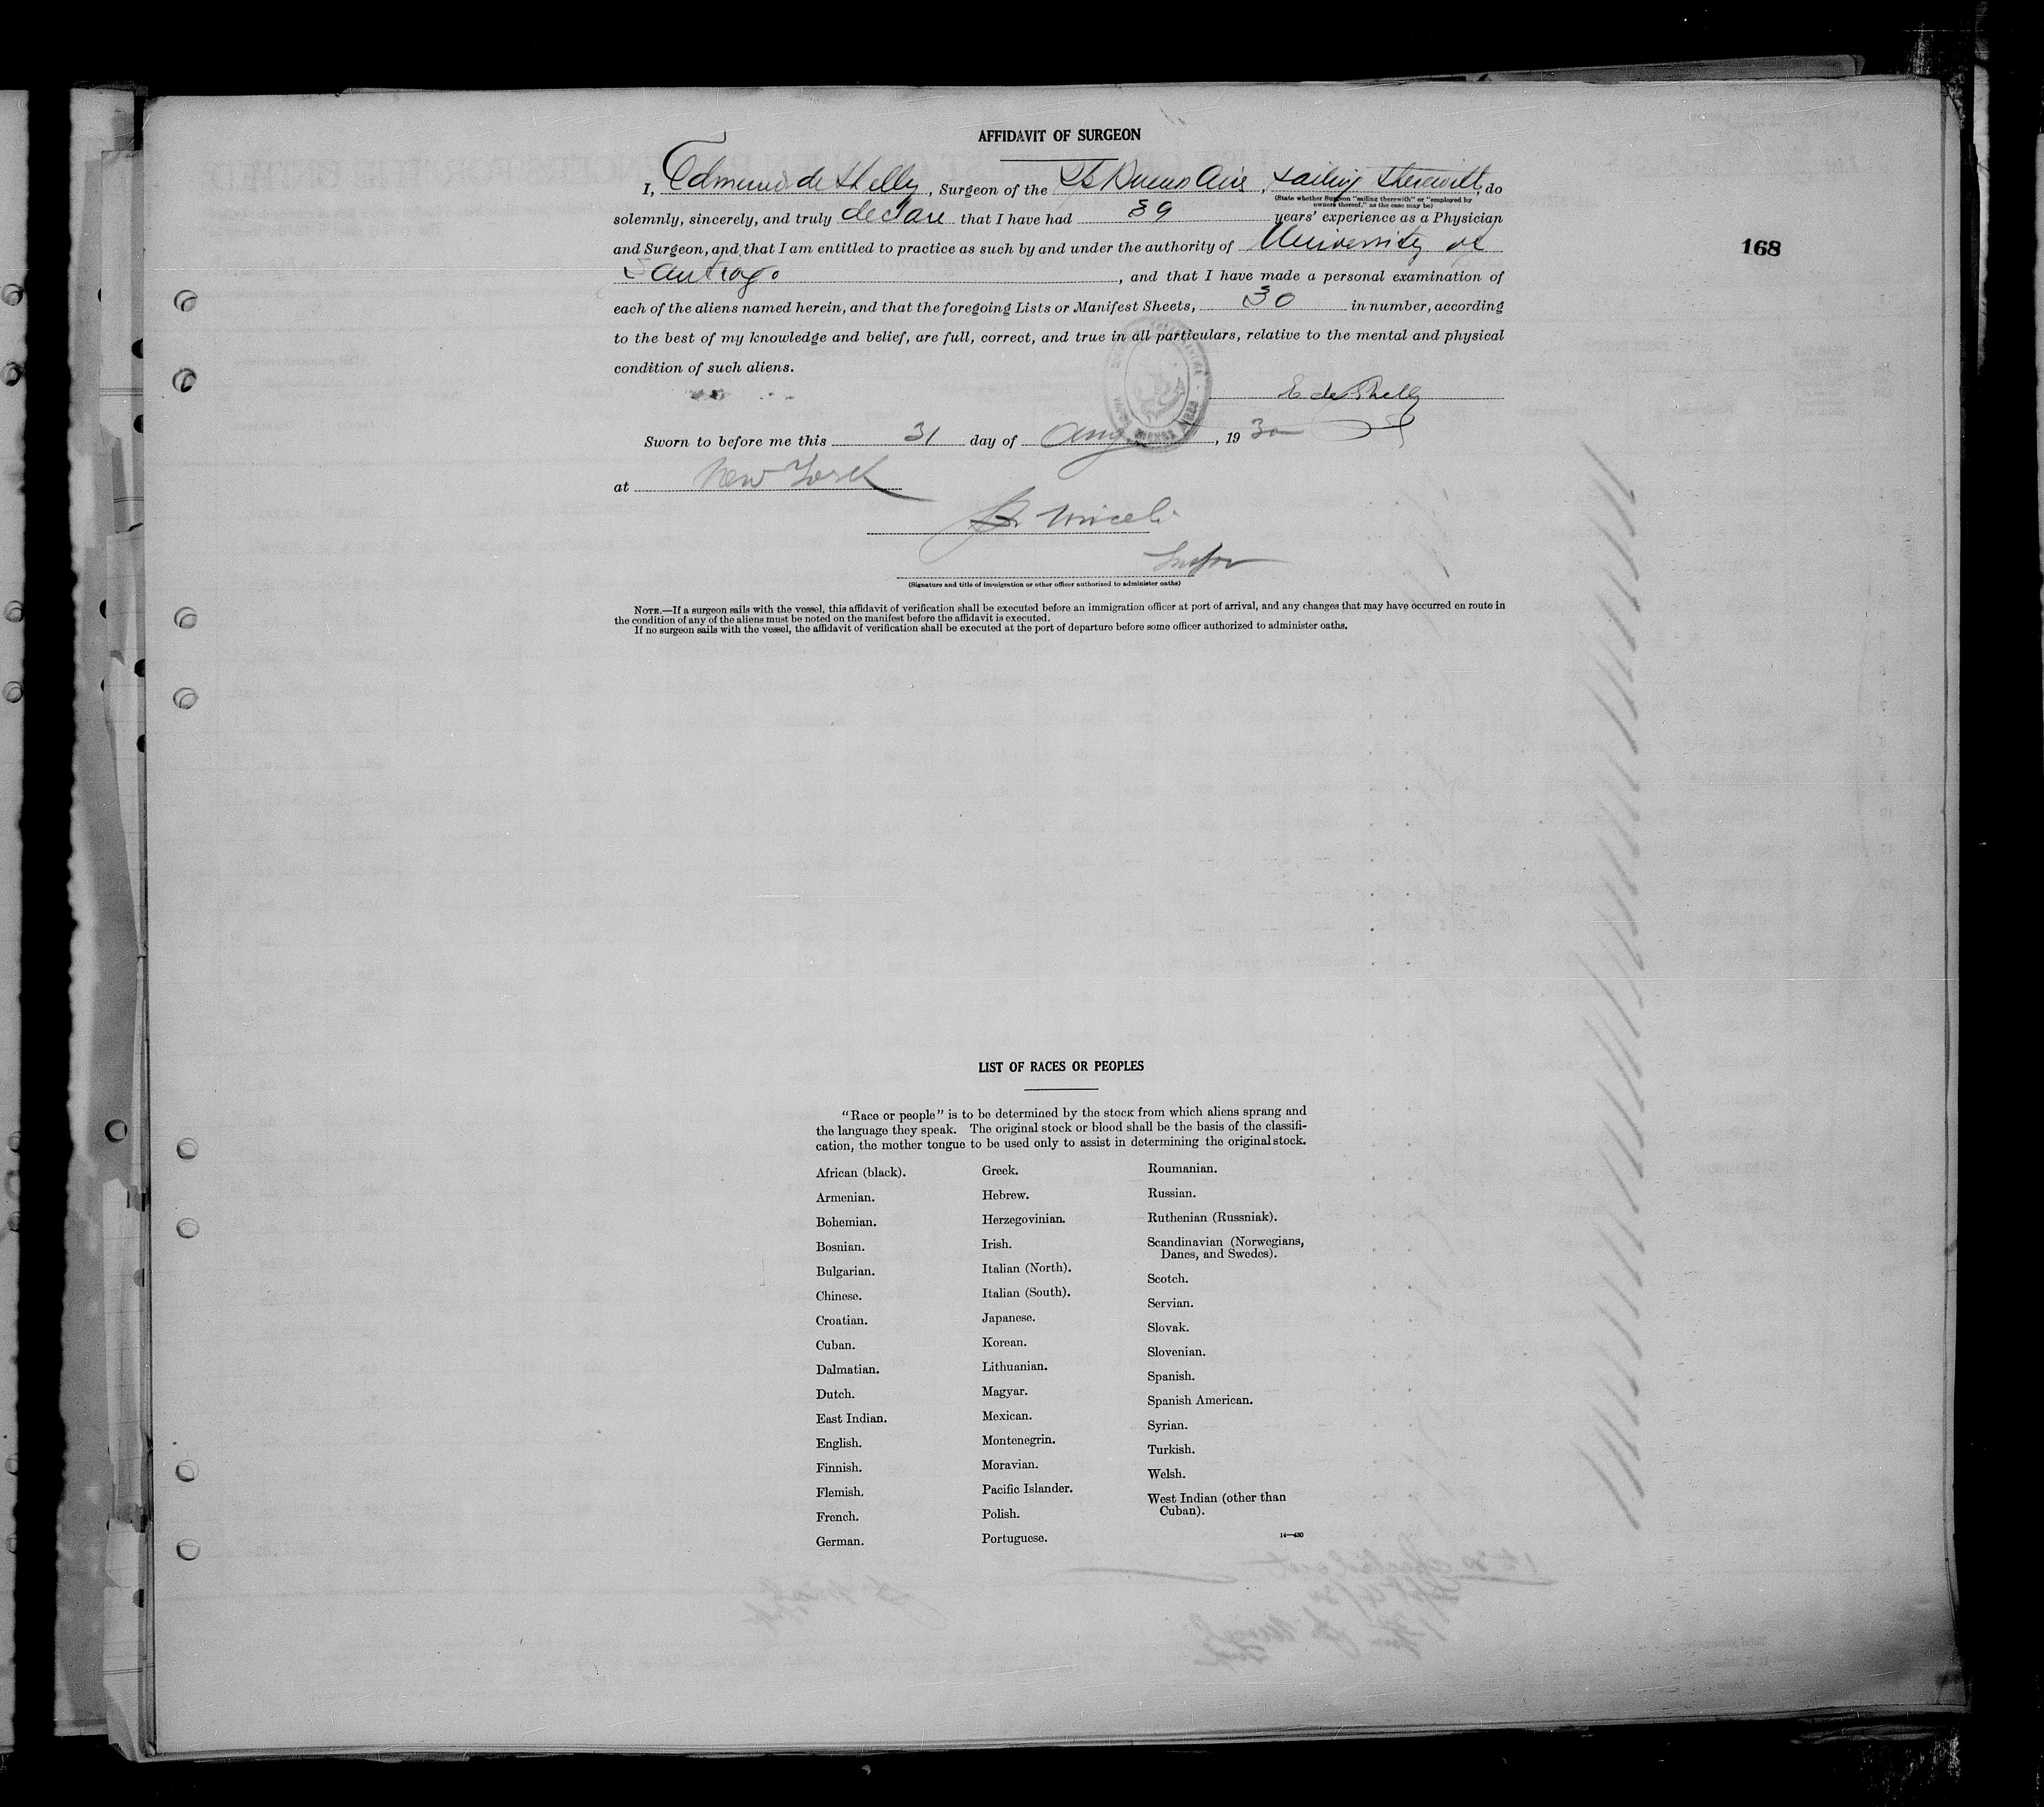 AFFIDAVIT OF SURGEON
I, Edmundo de Shelly, Surgeon of the S/S Buenos Aires, sailing therewith, do
(State whether Surgeon "sailing therewith" or "employed by
owners thereof," as the case may be)
solemnly, sincerely, and truly declare that I have had 39 years' experience as a Physician
and Surgeon, and that I am entitled to practice as such by and under the authority of University of
Santiago, and that I have made a personal examination of
each of the aliens named herein, and that the foregoing Lists or Manifest Sheets, 30 in number, according
to the best of my knowledge and belief, are full, correct, and true in all particulars, relative to the mental and physical
condition of such aliens.
E de Shelly
Sworn to before me this 31 day of Aug, 1930
at New York
Miceli
Inspr
(Signature and title of immigration or other officer authorized to administer oaths)
NOTE.—If a surgeon sails with the vessel, this affidavit of verification shall be executed before an immigration officer at port of arrival, and any changes that may have occurred en route in
the condition of any of the aliens must be noted on the manifest before the affidavit is executed.
If no surgeon sails with the vessel, the affidavit of verification shall be executed at the port of departure before some officer authorized to administer oaths.
168
LIST OF RACES OR PEOPLES
"Race or people" is to be determined by the stock from which aliens sprang and
the language they speak. The original stock or blood shall be the basis of the classifi-
cation, the mother tongue to be used only to assist in determining the original stock.
African (black).
Armenian.
Bohemian.
Bosnian.
Bulgarian.
Chinese.
Croatian.
Cuban.
Dalmatian.
Dutch.
East Indian.
English.
Finnish.
Flemish.
French.
German.
Greek.
Hebrew.
Herzegovinian.
Irish.
Italian (North).
Italian (South).
Japanese.
Korean.
Lithuanian.
Magyar.
Mexican.
Montenegrin.
Moravian.
Pacific Islander.
Polish.
Portuguese.
Roumanian.
Russian.
Ruthenian (Russniak).
Scandinavian (Norwegians,
Danes, and Swedes).
Scotch.
Servian.
Slovak.
Slovenian.
Spanish.
Spanish American.
Syrian.
Turkish.
Welsh.
West Indian (other than
Cuban).
14—430